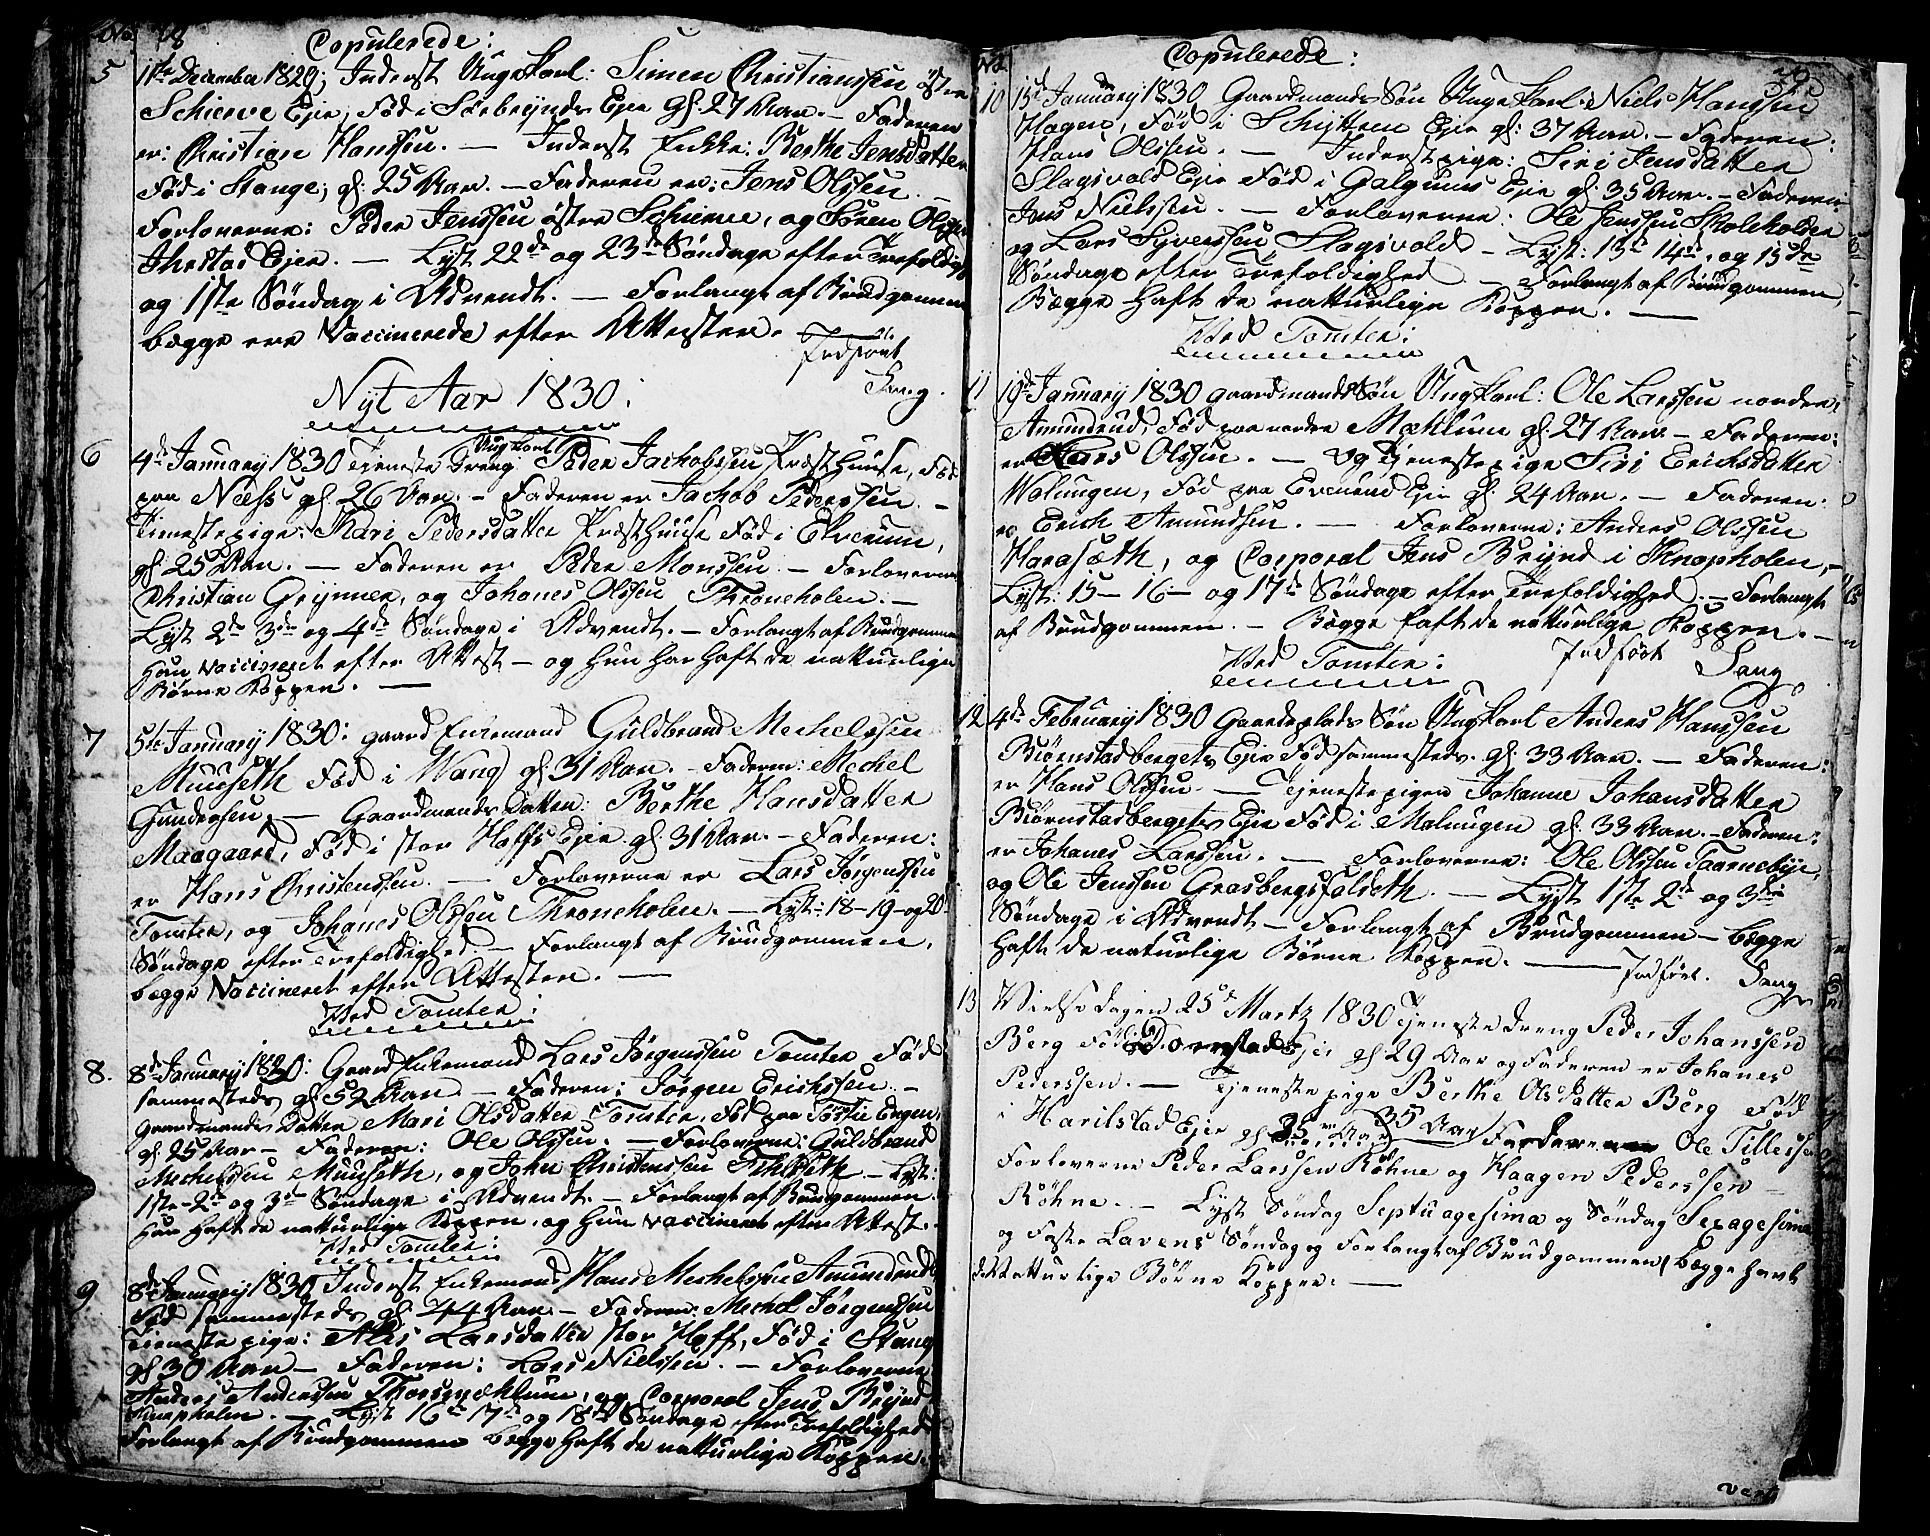 No 78
Copulerede:
5 11te December 1829; Inderst Ungekarl: Simen Christianssen östre
Schierve Eje, Fød i Sörbrynds Eje gl. 27 Aar. — Faderen
er: Christian Hanssen. — Inderst Enkke: Berthe Jensdatter
Fød i Stange; gl. 25 Aar. — Faderen er: Jens Olssen. —
Forloverne: Peder Jenssen östre Schierve, og Sören Olssen
Eje. — Lyst 22de og 23de Søndage efter Trefoldigh
og 1ste Søndag i Advendt. — Forlangt af Brudgommen
begge ere Vaccinerede efter Attester.
Indført
Sang.
Nyt Aar 1830:
6 4de January 1830 Tjeneste Dreng Ungkarl Peder Jachobssen Præsthuuse, Fød
paa Næss gl. 26 Aar. — Faderen er Jachob Pederssen —
Tieneste pige: Kari Pedersdatter Præsthuuse Fød i Elverum,
gl. 25 Aar. — Faderen er Peder Monssen — Forloverne
Christian Grynner, og Johanes Olssen Throneholen. —
Lyst 2de 3de og 4de Søndage i Advendt. — Forlangt af Brudgommen
Han vaccineret efter Attest — og Hun har haft de natturlige
Børne Kopper. —
7 5te January 1830: gaard Enkemand Guldbrand Mechelssen
Muuseth Fød i Wang gl. 31 Aar. — Faderen: Mechel
Gundersen, — Gaardmands Datter: Berthe Hansdatter
Maagaard, Fød i stor Hoffs Eje gl. 31 Aar. — Faderen:
er Hans Christenssen. — Forloverne er Lars Jørgenssen
Tomter, og Johanes Olssen Throneholen. — Lyst: 18 - 19 - og 20
Søndage efter Trefoldighed — Forlangt af Brudgommen,
begge Vaccineret efter Attester. —
Ved Tomter:
8. 8de January 1830: Gaard Enkemand Lars Jörgenssen Tomter Fød
sammesteds gl. 52 Aar — Faderen: Jörgen Erichssen —
gaardmands Datter Mari Olsdatter Tomter, Fød paa
gl. 25 Aar — Faderen: Ole Olssen. — Forloverne: Guldbrand
Mechelssen Muuseth, og John Christenssen — Lyst:
1ste - 2de og 3de Søndage i Advendt. — Forlangt af Brudgommen
Han haft de nattturlige Kopper, og Hun vaccineret efter Attest.
Ved Tomter:
9. 8de January 1830 Inderst Enkemand Hans Mechelssen Amundrud
Fød sammesteds gl. 44 Aar — Faderen: Mechel Jørgenssen
Tieneste pige: Alis Larsdatter stor Hoff, Fød i Stang
gl 30 Aar — Faderen: Lars Nielssen. — Forloverne
Anders Anderssen Thorsmæhlum, og Corporal Jens Brynd
Knapholen. — Lyst 16de 17de og 18de Søndage efter Trefoldighed
Forlangt af Brudgommen begge haft de nattturlige Kopper.
Copulerede:
10 15de January 1830 Gaardmands Søn Unge Karl: Niels Hanssen
Hagen, Fød i Schytten Eje gl: 37 Aar. — Faderen:
Hans Olssen. — Inderst pige: Siri Jensdatter
Slagsvold Eje Fød i Galgums Eje gl. 35 Aar. — Faderen:
Jens Nielssen. — Forloverne: Ole Jenssen Skoleholder
og Lars Syverssen Slagsvold — Lyst: 13de 14de, og 15de
Søndage efter Trefoldighed — Forlangt af Brudgommen,
Begge haft de nattturlige Kopper. —
Ved Tomter:
11 19de January 1830 gaardmands Søn Ungkarl: Ole Larssen nordre
Amundrud, Fød paa nordre Mæhlum gl. 27 Aar — Faderen:
er Lars Olssen. — Og Tjeneste pige Siri Erichsdatter
Malungen, Fød paa Evenrud Eje gl. 24 Aar. — Faderen:
er Erich Amundsen. — Forloverne: Anders Olssen
Harasæth, og Corporal Jens Brynd i Knapholen, —
Lyst: 15 — 16 — og 17de Søndage efter Trefoldighed. — Forlangt
af Brudgommen. — Begge haft de nattturlige Kopper. —
Ved Tomter:
Indført Sang
12 4de February 1830 Gaardeplads Søn Ungkarl Anders Hanssen
Bjørnstadbergets Eje Fød sammesteds. gl. 33 Aar. — Faderen:
er Hans Olssen. — Tjeneste pigen Johanne Johansdatter
Biørnstadbergets Eje Fød i Malungen gl. 33 Aar. — Faderen:
er Johanes Larssen. — Forloverne: Ole Olssen Taarnebye,
og Ole Jenssen Grasbergsfaldeth. — Lyst 1ste 2de og 3de
Søndage i Advendt — Forlangt af Brudgommen — begge
haft de naturlige Børne Kopper. — Indført. Sang
13 Vielse dagen 25de Martz 1830 Tjeneste Dreng Peder Johanssen
Berg Fød i Eje gl 29 Aar og Faderen er Johanes
Pederssen. — Tjeneste pige Berthe Ols Datter Berg Fød
i Harilstad Eje gl 35 Aar Faderen Ole Tillessen
Forloverne Peder Larssen Röhne og Haagen Pederssen
Röhne. — Lyst Søndag Septuagesima og Søndag Sexagesima
og Faste Lavens Søndag og Forlangt af Brudgommen begge havt
de Natturlige Børne Kopper. —